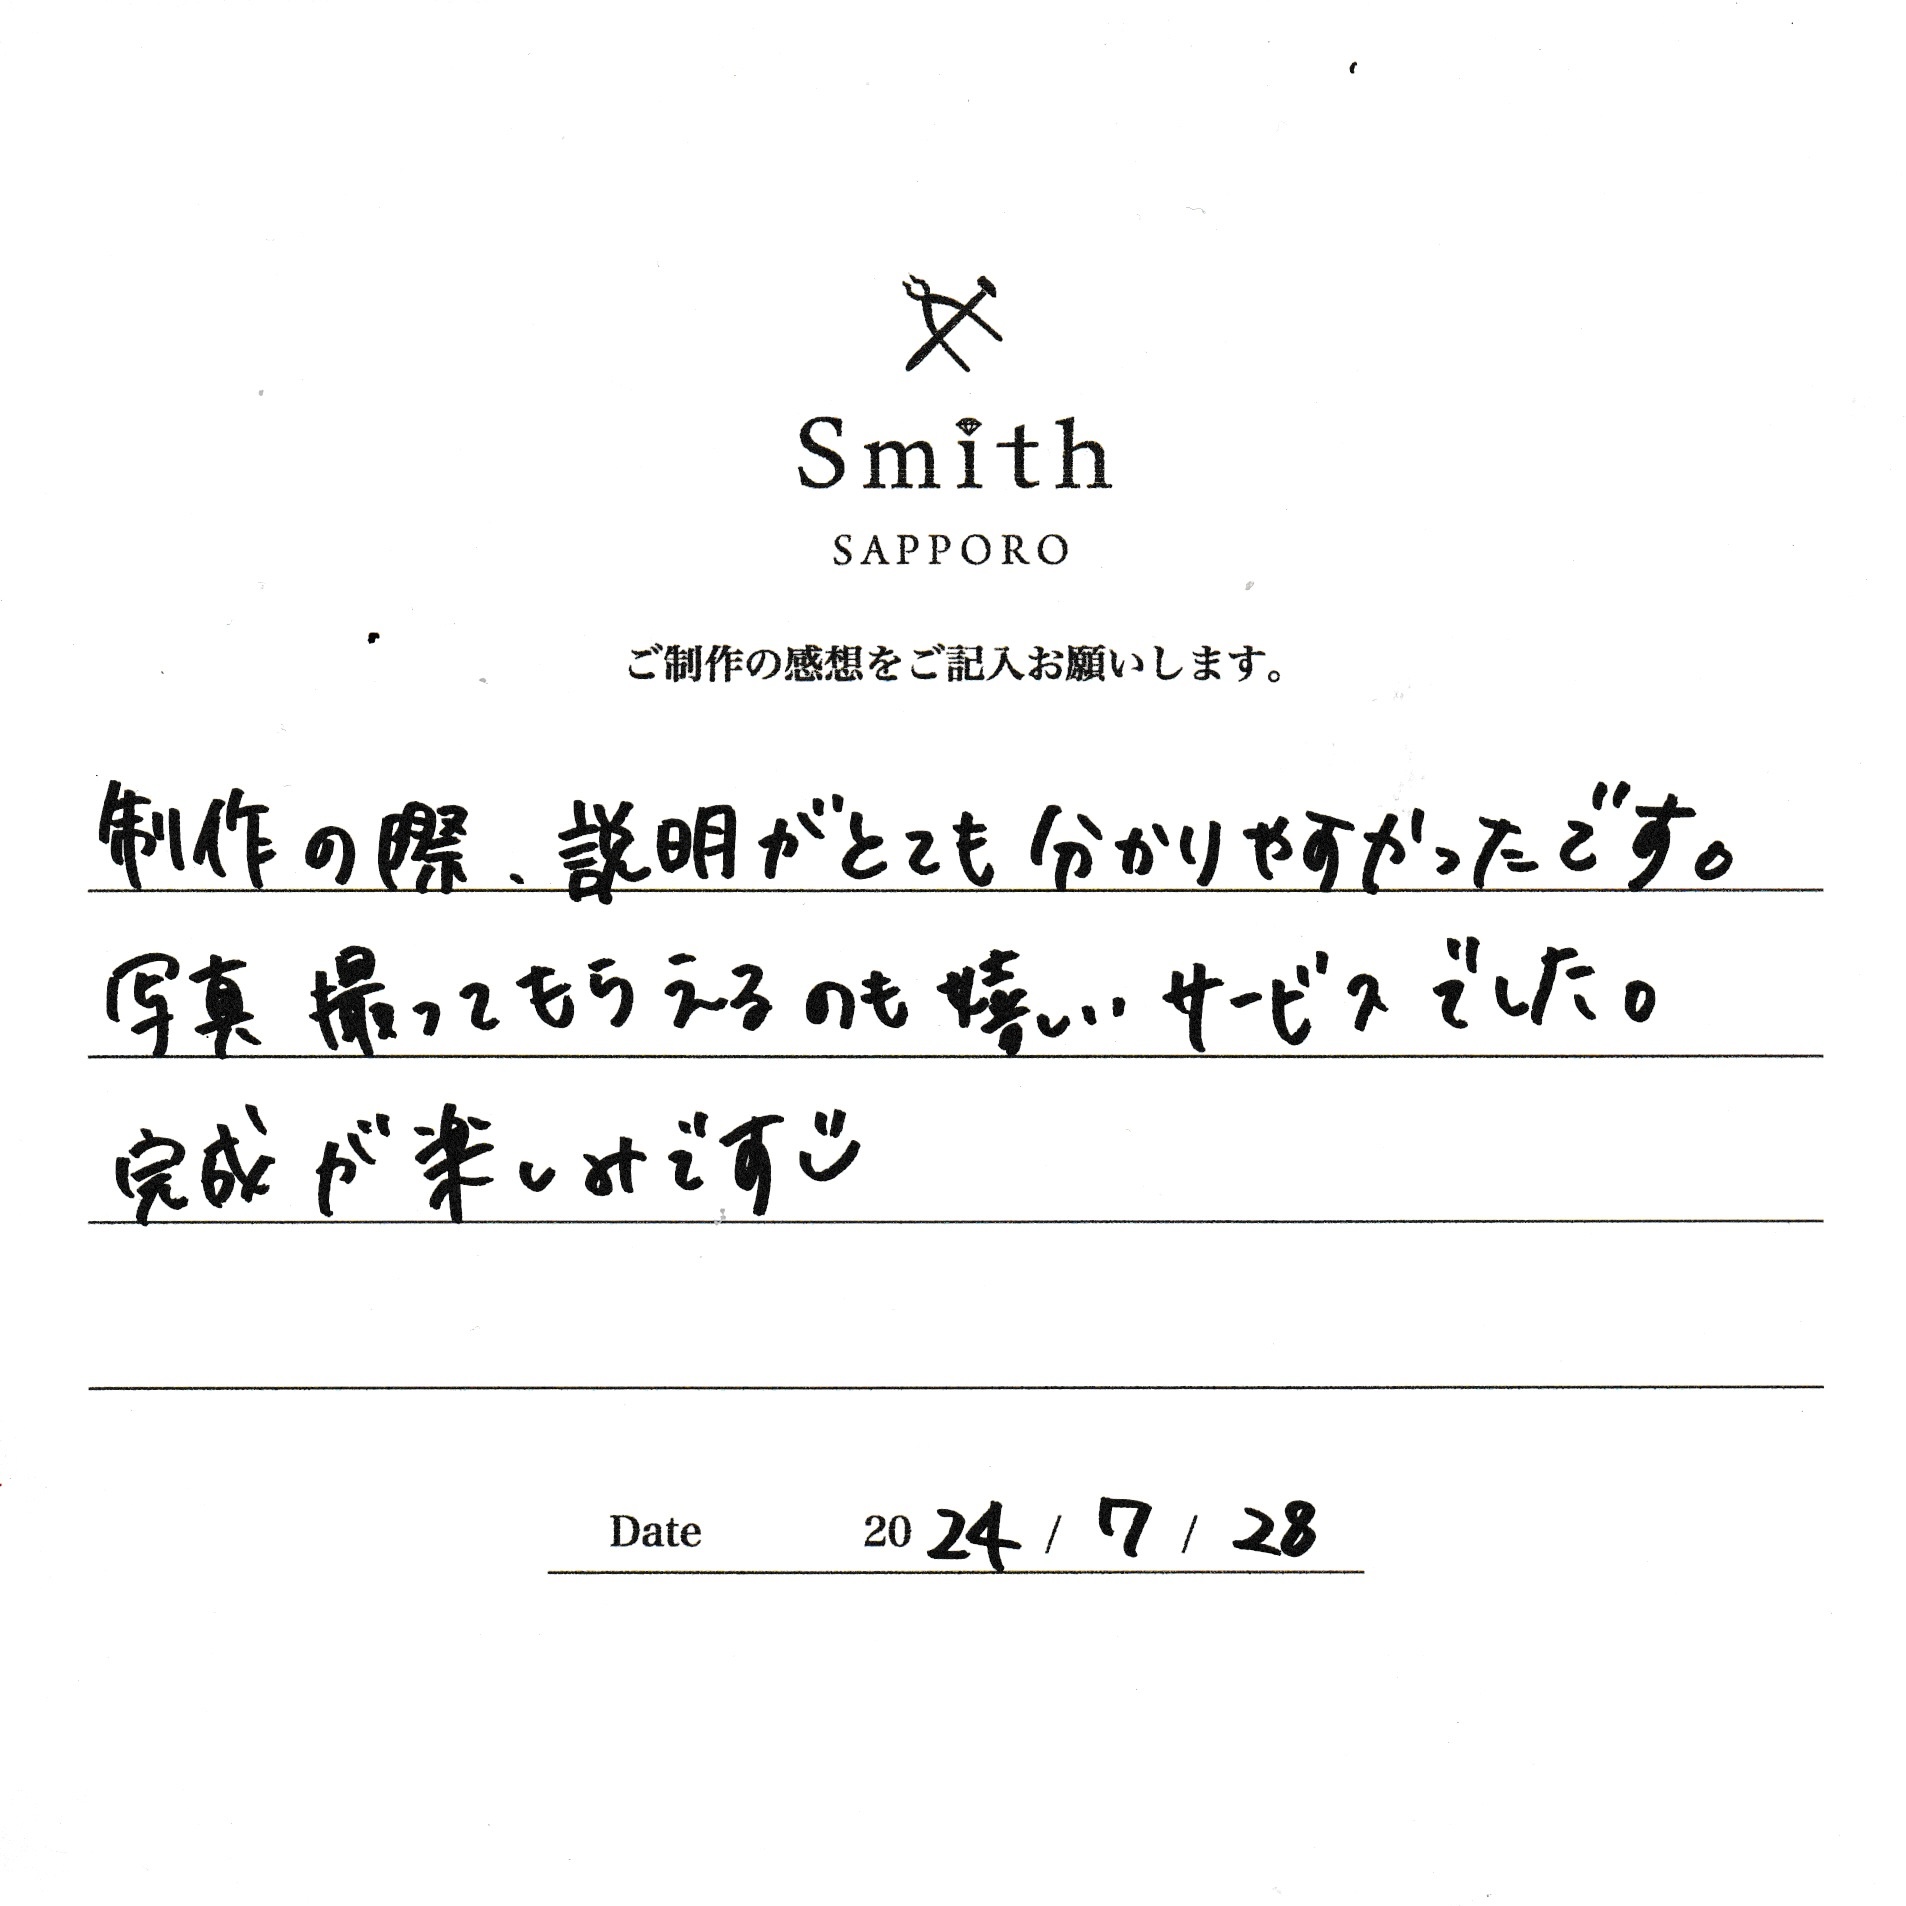 Smith
SAPPORO
ご制作の感想をご記入お願いします。
制作の際、説明がとても分かりやすかったです。
写真撮ってもらえるのも嬉しいサービスでした。
完成が楽しみです
Date 2024 / 7 / 28